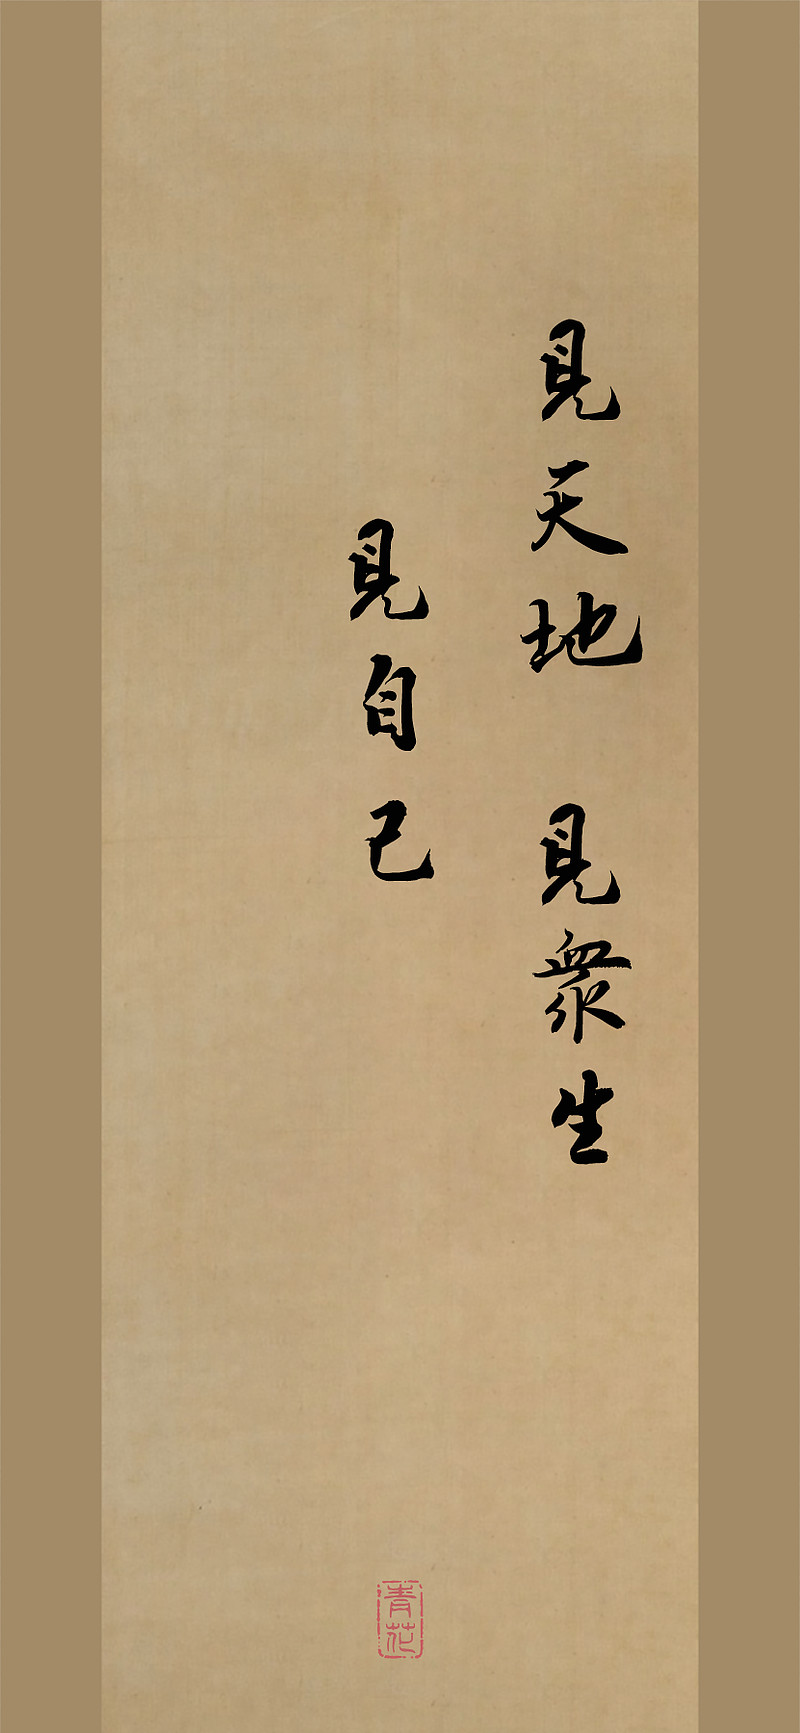 見天地 見衆生
見自己
青花